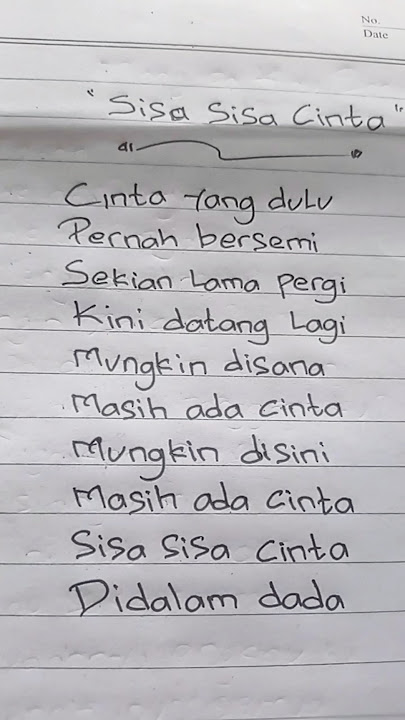 No.
Date
"Sisa Sisa Cinta"
Cinta Yang dulu
Pernah bersemi
Sekian Lama pergi
Kini datang Lagi
Mungkin disana
Masih ada cinta
Mungkin disini
Masih ada cinta
Sisa Sisa Cinta
Didalam dada